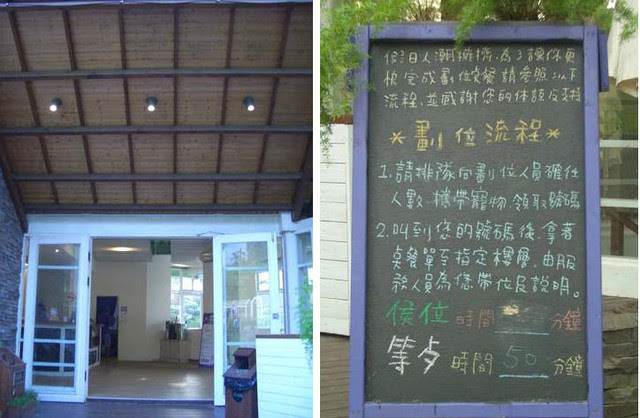 假日人潮擁擠,為了讓你更
快完成劃位安餐,請參照以下
流程,並感謝您的体諒及支持
*劃位流程*
1.請排隊向劃位人員確任
人數、攜帶寵物,領取號碼
2.叫到您的號碼後,拿著
桌餐單至指定樓層,由服
務人員為您帶位及說明。
候位時間 分鐘
等歺時間50分鐘